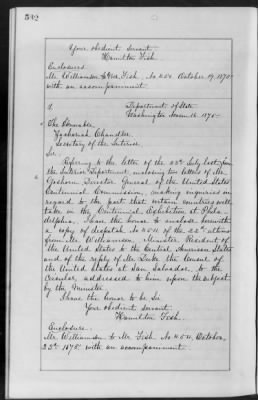 532
Your obedient servant
Hamilton Fish
Enclosures.
Mr. Williamson to Mr. Fish, No 404. October 19, 1875
with an accompaniment.
Department of State
Washington November 16 1875
The Honorable
Zachariah Chandler
Secretary of the Interior
Sir
Referring to the letter of the 23d July last from
the Interior Department enclosing ten letters of Mr.
Goshorn Director General, of the United States
Centennial Commission, making inquiries in
regard to the part that certain countries will
take in the Centennial Exhibition at Phila-
delphia, I have the honor to enclose herewith
a copy of despatch No of the 22d ultimo
from Mr. Williamson, Minister Resident of
the United States to the Central American States
and of the reply of Mr. Duke the Consul of
the United States at San Salvador, to the
Circular, addressed to him upon the subject
by the Minister.
I have the honor to be Sir
Your obedient servant
Hamilton Fish.
Enclosure.
Mr. Williamson to Mr. Fish No October,
22d 1875. with an accompaniment.